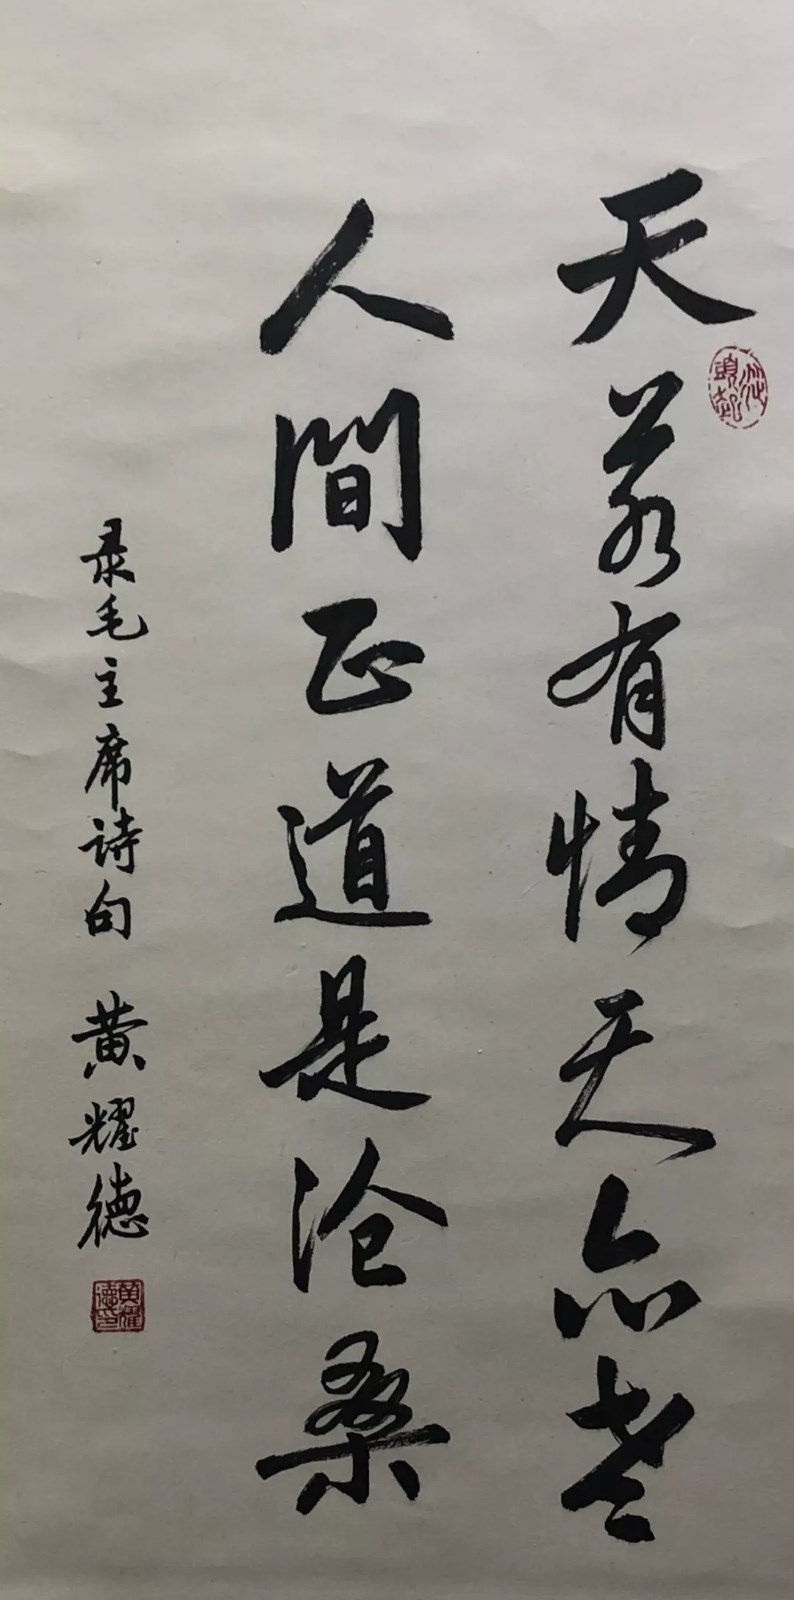 天若有情天亦老
人間正道是沧桑
录毛主席诗句 黄耀德
黄耀德印